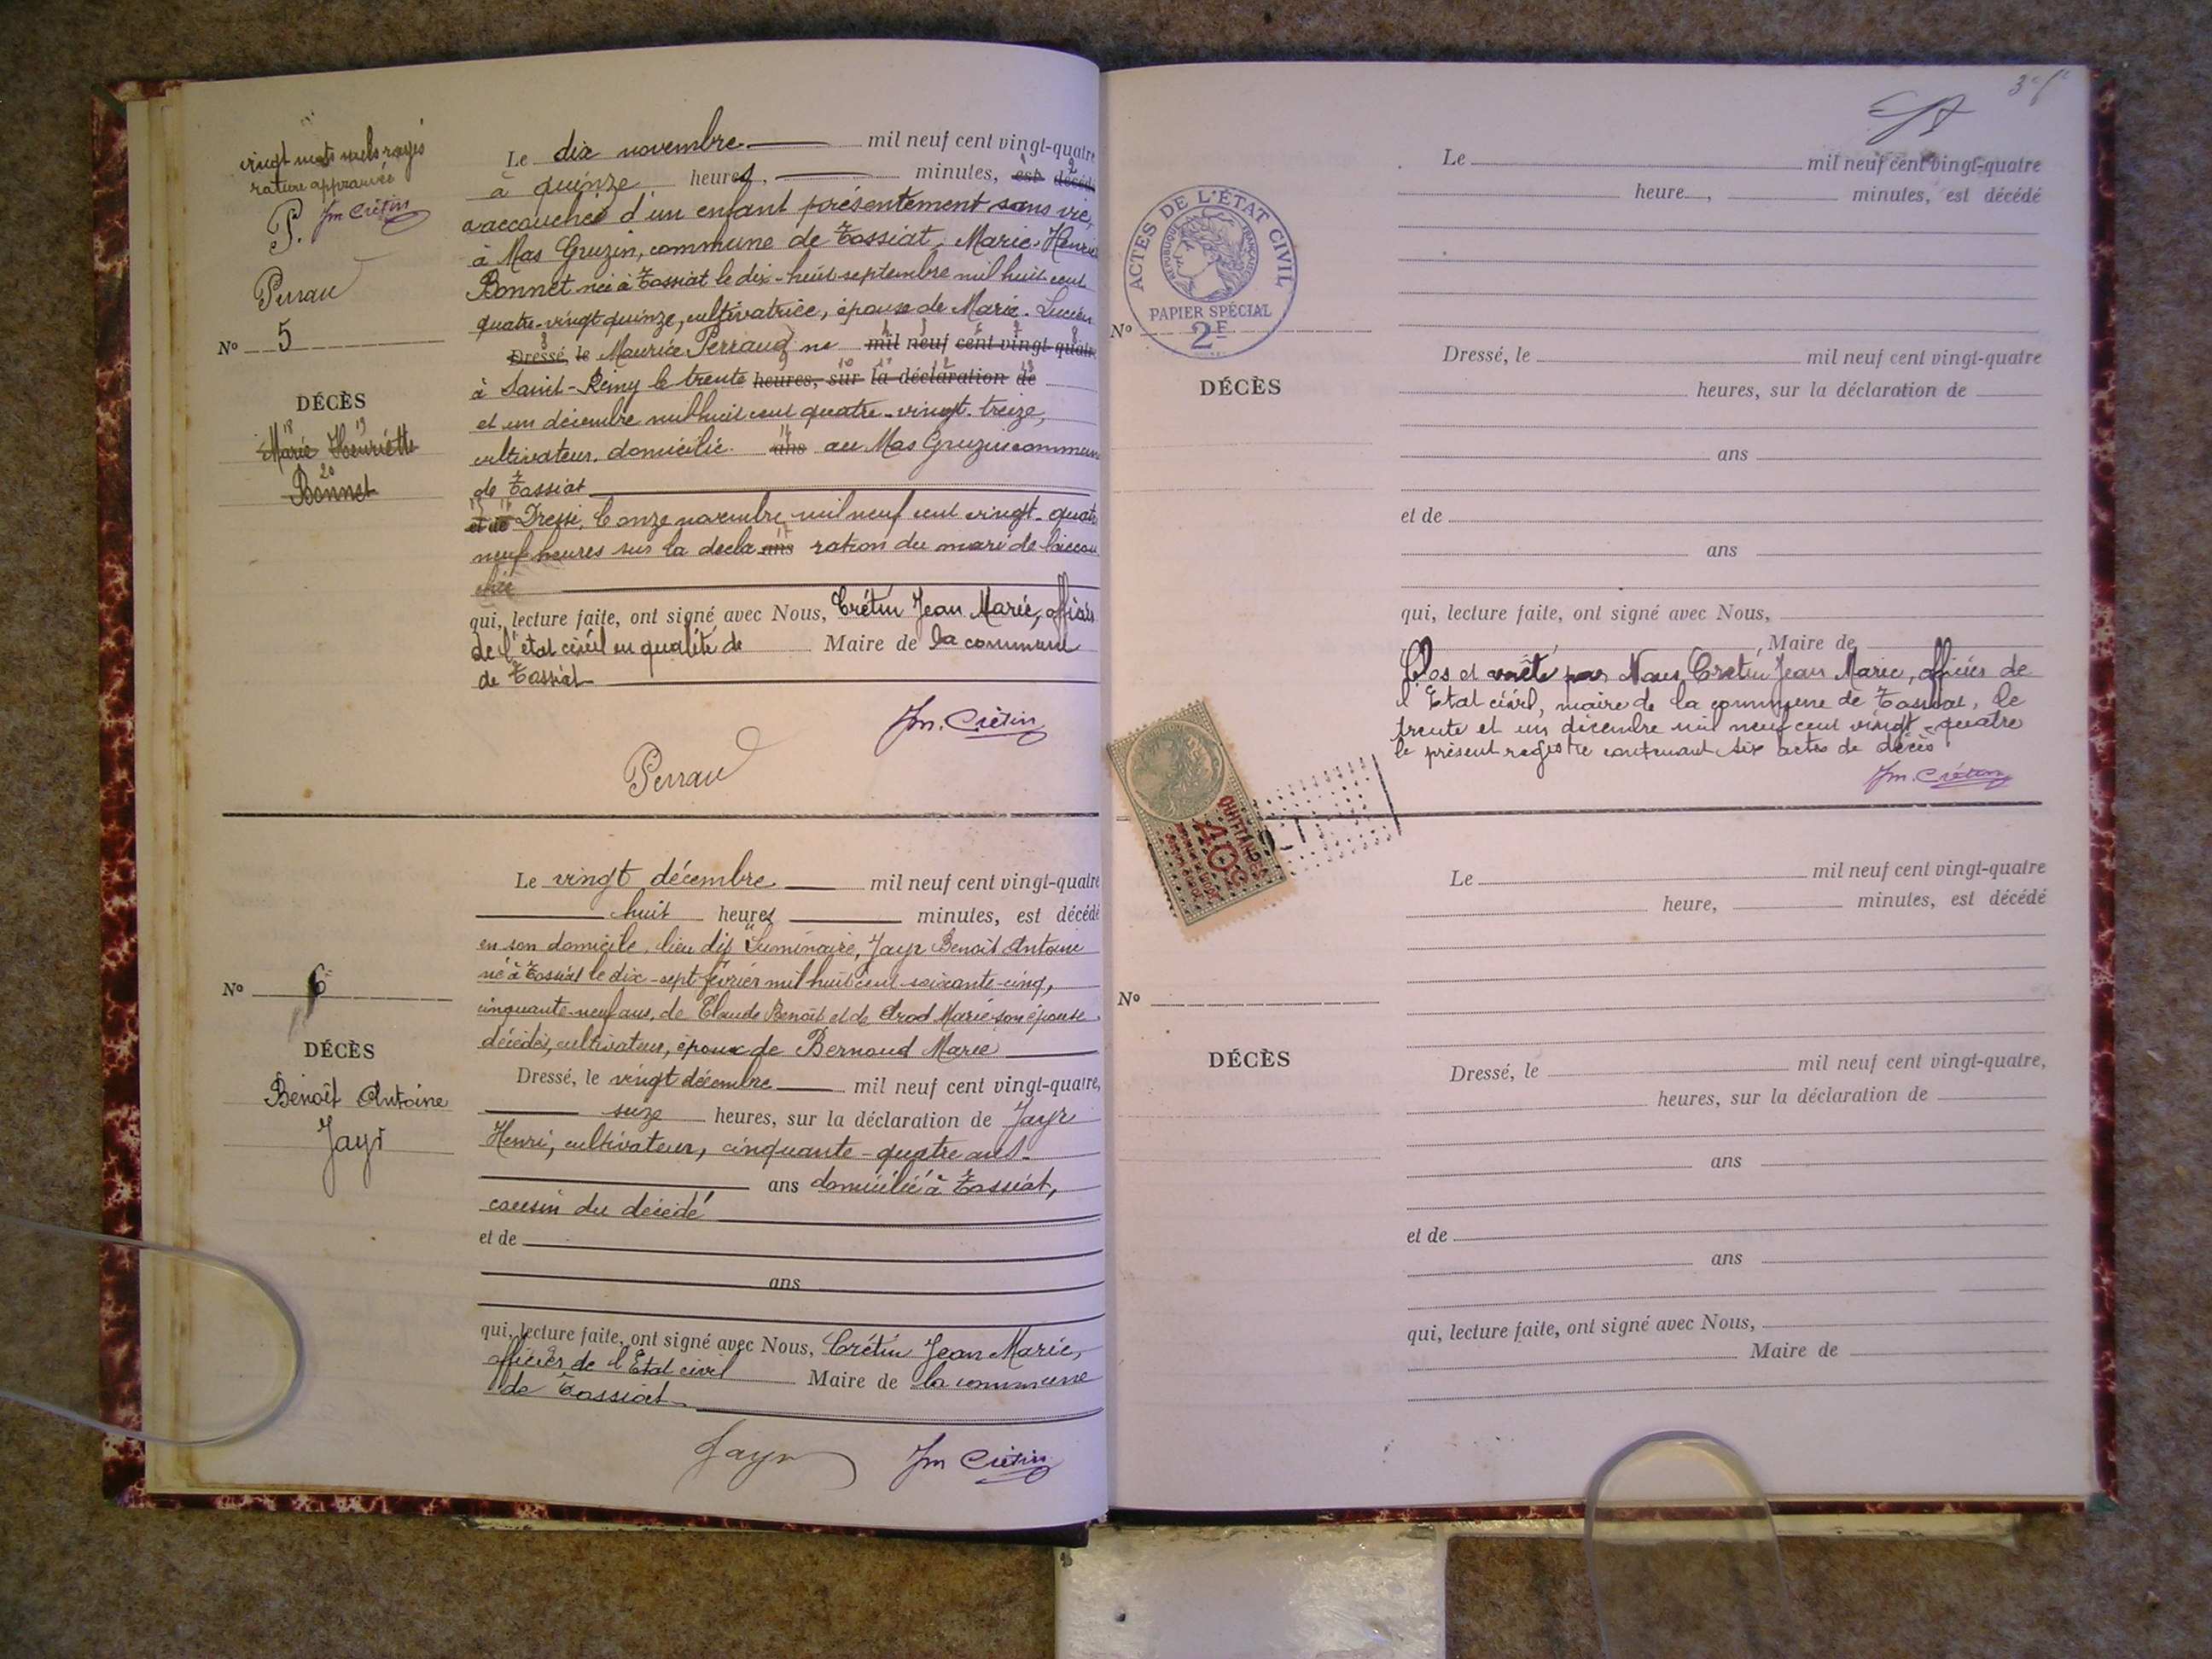 vingt mots nuls rayés
rature approuvée
P. Jm Crétin
Perrau
N° 5
DÉCÈS
18 19
Marie Henriette
20
Bonnet
Le dix novembre mil neuf cent vingt-quatre
à quinze heures, minutes, est décédé
accouchée d'un enfant présentement sans vie,
à Mas Gruzin, commune de Tossiat, Marie-Henri
Bonnet née à Tossiat le dix-huit septembre mil huit cent
quatre-vingt quinze, cultivatrice, épouse de Marie-Lucien
Dressé, le Maurice Perraud né mil neuf cent vingt-quatre
à Saint-Rémy le trente heures, sur la déclaration de
et un décembre mil huit cent quatre-vingt-treize,
cultivateur, domicilié ans au Mas Gruzin commune
de Tossiat
et de Dressé, le onze novembre mil neuf cent vingt-quatre
neuf heures sur la décla ans ration du mari de l'accou
chée
qui, lecture faite, ont signé avec Nous, Crétin Jean Marie, officier
de l'état civil en qualité de Maire de la commune
de Tossiat
Jm. Crétin
Perrau
N° 6
DÉCÈS
Benoît Antoine
Jayr
Le vingt décembre mil neuf cent vingt-quatre
huit heures minutes, est décédé
en son domicile, lieu dit Luminaire, Jayr Benoît Antoine
né à Tossiat le dix-sept février mil huit cent soixante-cinq,
cinquante-neuf ans, de Claude Benoit et de Arod Marie son épouse
décédés, cultivateur, époux de Bernoud Marie
Dressé, le vingt décembre mil neuf cent vingt-quatre,
seize heures, sur la déclaration de Jayr
Henri, cultivateur, cinquante-quatre ans
ans domicilié à Tossiat,
cousin du décédé
et de
ans
qui, lecture faite, ont signé avec Nous, Crétin Jean Marie,
officier de l'État civil Maire de la commune
de Tossiat
Jayr Jm Crétin
Le mil neuf cent vingt-quatre
heure, minutes, est décédé
ACTES DE L'ÉTAT CIVIL
RÉPUBLIQUE FRANÇAISE
PAPIER SPÉCIAL
2F
N°
DÉCÈS
Dressé, le mil neuf cent vingt-quatre
heures, sur la déclaration de
ans
et de
ans
qui, lecture faite, ont signé avec Nous,
Maire de
Clos et arrêté par Nous, Crétin Jean Marie, officier de
l'Etat civil, maire de la commune de Tossiat, le
trente et un décembre mil neuf cent vingt-quatre
le présent registre contenant six actes de décès
Jm. Crétin
QUITTANCES
40c
Le mil neuf cent vingt-quatre
heure, minutes, est décédé
N°
DÉCÈS
Dressé, le mil neuf cent vingt-quatre,
heures, sur la déclaration de
ans
et de
ans
qui, lecture faite, ont signé avec Nous,
Maire de